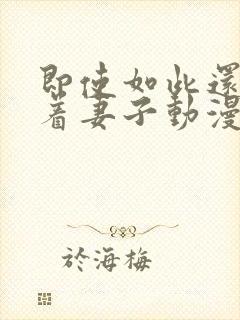 即使如此還
着妻子動漫
於海梅